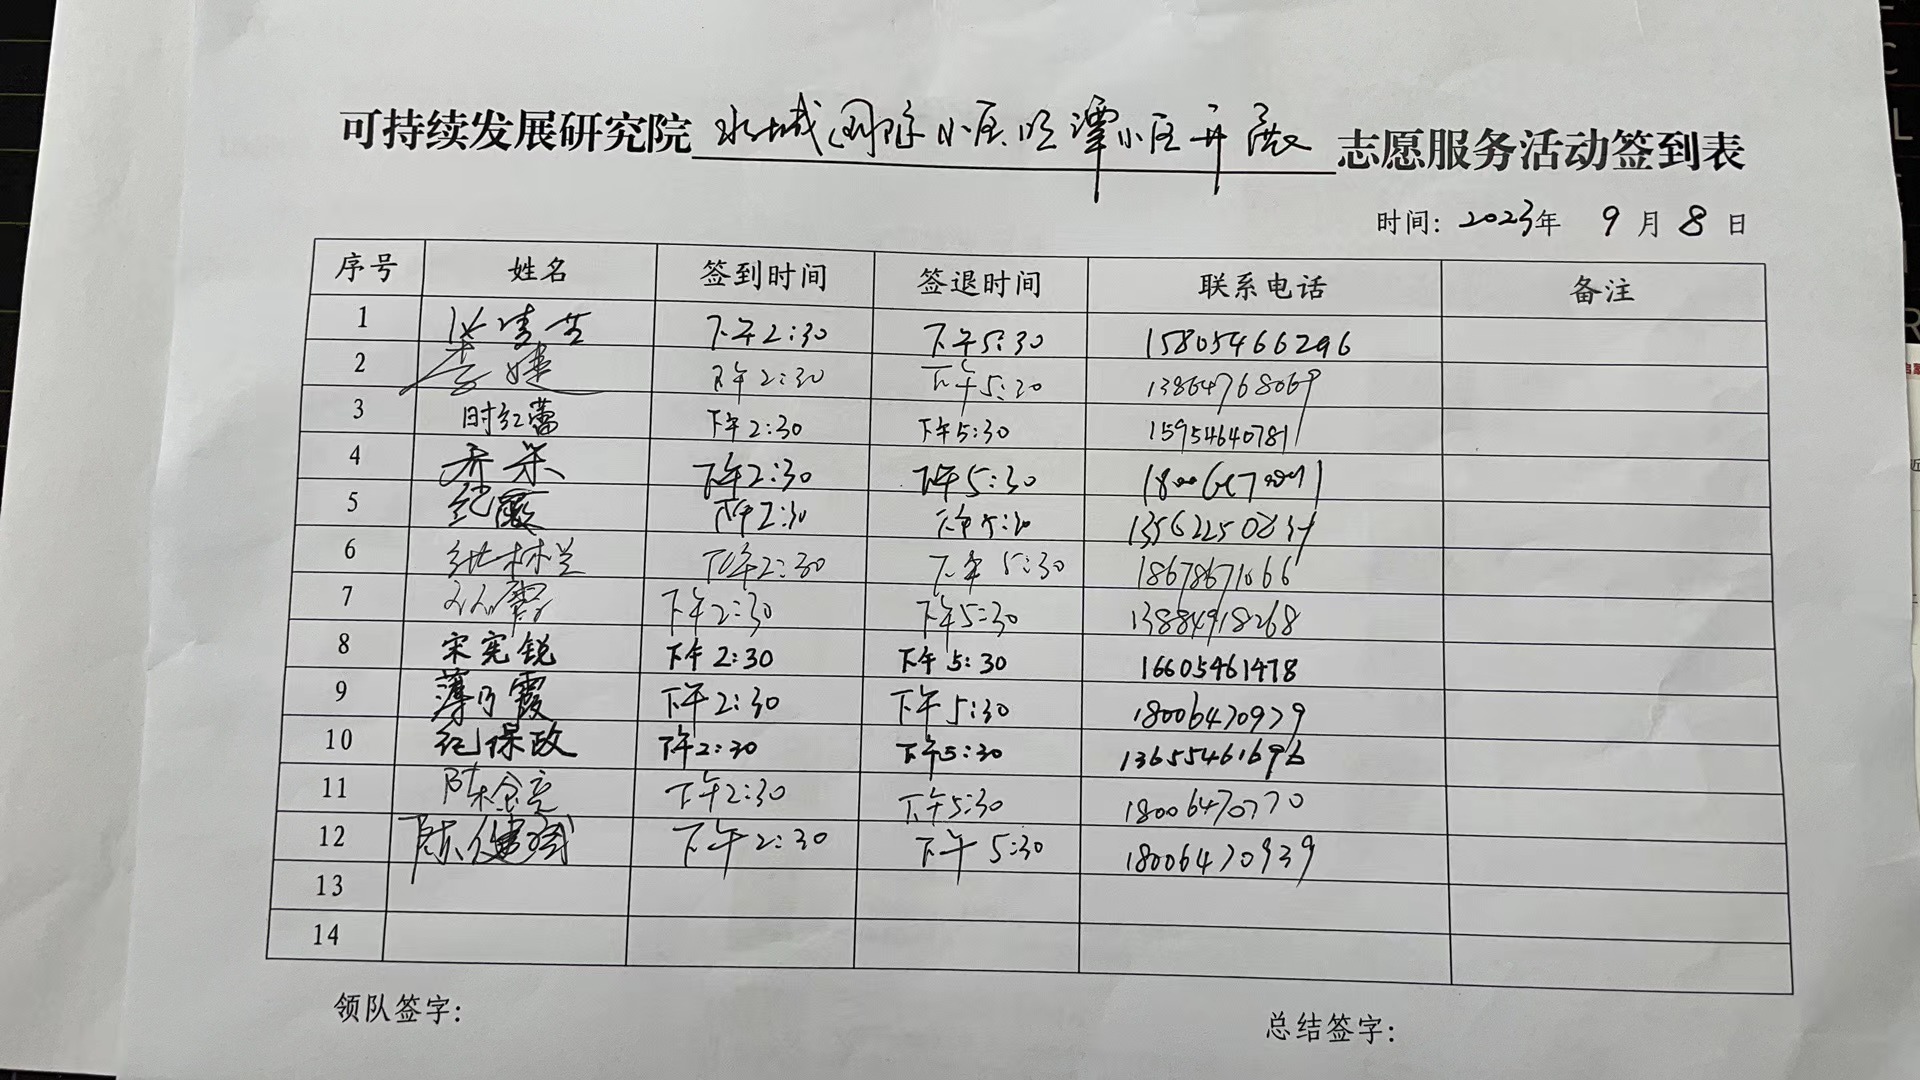 可持续发展研究院 水城国际小区 潭小区开展 志愿服务活动签到表
时间: 2023年 9月8日
序号 姓名 签到时间 签退时间 联系电话 备注
1 下午2:30 下午5:30 15805466296
2 李婕 下午2:30 下午5:30 13864768069
3 时红蕾 下午2:30 下午5:30 15954640781
4 乔朵 下午2:30 下午5:30
5 纪霞 下午2:30 下午5:30
6 下午2:30 下午5:30 18678671066
7 下午2:30 下午5:30 13884918268
8 宋宪锐 下午2:30 下午5:30 16605461478
9 薄乃霞 下午2:30 下午5:30 18006470979
10 纪保政 下午2:30 下午5:30 13655461696
11 陈金亮 下午2:30 下午5:30 18006470770
12 陈健斌 下午2:30 下午5:30 18006470939
13
14
领队签字:
总结签字: